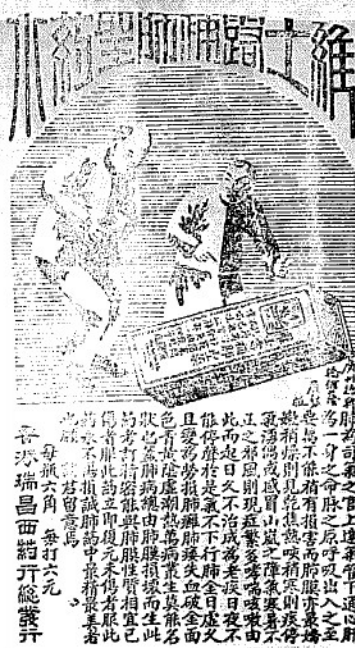 維士路佛師聖药水
肺為司氣之官上達氣管下通心肝
為一身之命脉之原呼吸出入之至
要萬不能稍有損害而肺膜亦最嬌
嫩稍燥則見乾焦熱咳稍寒則痰停
氣湧偶或感冒山嵐之障氣寒暑不
正之邪風則現症繁多哮喘咳嗽由
此而起日久不治成為老痰日夜不
能停聲於是氣不下行肺金日虛久
且變為勞損肺癰肺痿失血破金面
色青黃陰虛潮熱萬病叢生莫能名
狀也蓋肺病總由肺膜損壞而生此
药考訂精密能與肺膜性質相宜已
傷者服此药立即復元未傷者服此
药水不再損誠肺药中最精最美者
也願諸君留意焉
每瓶六角 每打六元
香港瑞昌西药行總發行